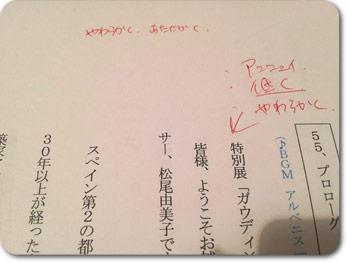 やわらかく、あたたかく、
アンニュイ
低く
やわらかく
55、プロローグ
(♪BGM アルベニス
特別展「ガウディ×
皆様、ようこそお
サー、松尾由美子で
スペイン第2の都
30年以上が経った